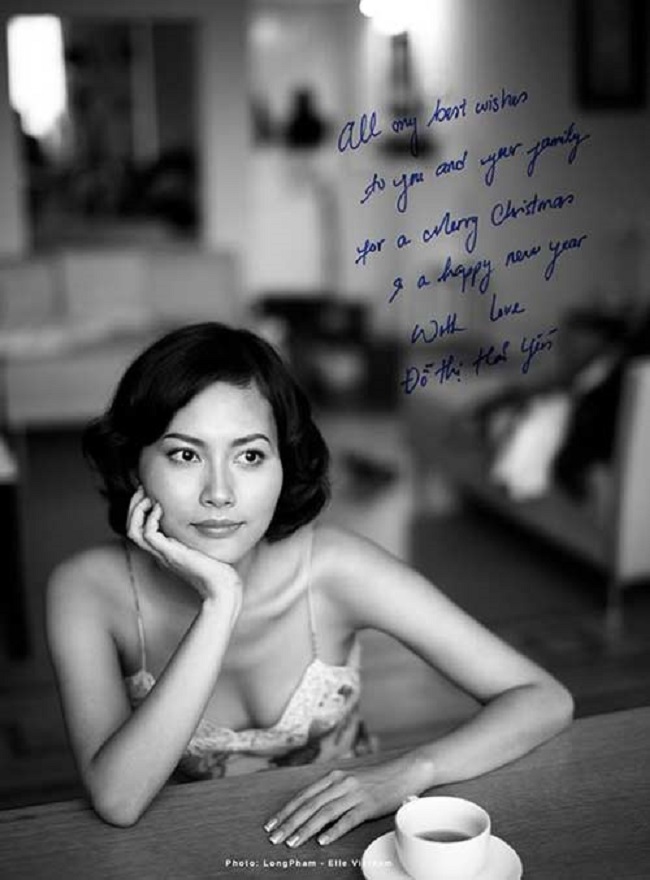 All my best wishes
to you and your family
for a Merry Christmas
& a happy new year
With love
Đỗ thị Hải Yến
Photo: LongPham - Elle Vietnam